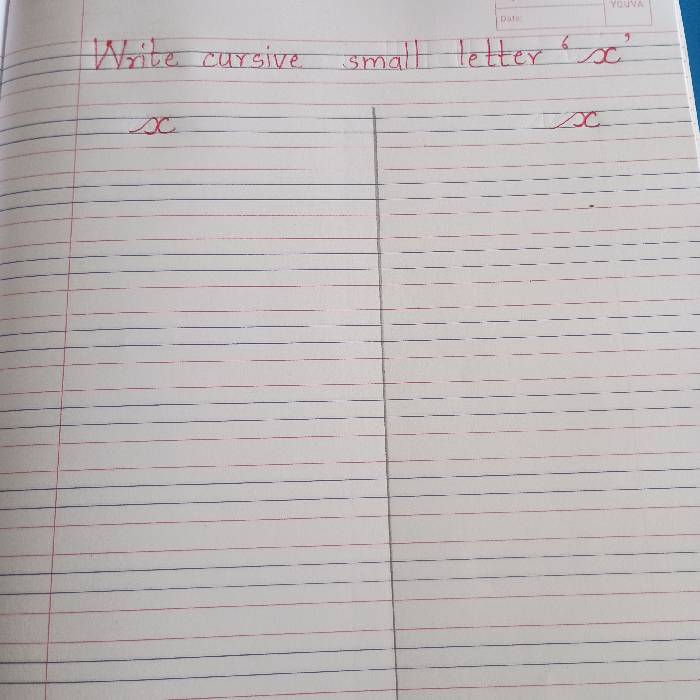 YOUVA
Date:
Write cursive small letter ‘x’
x x